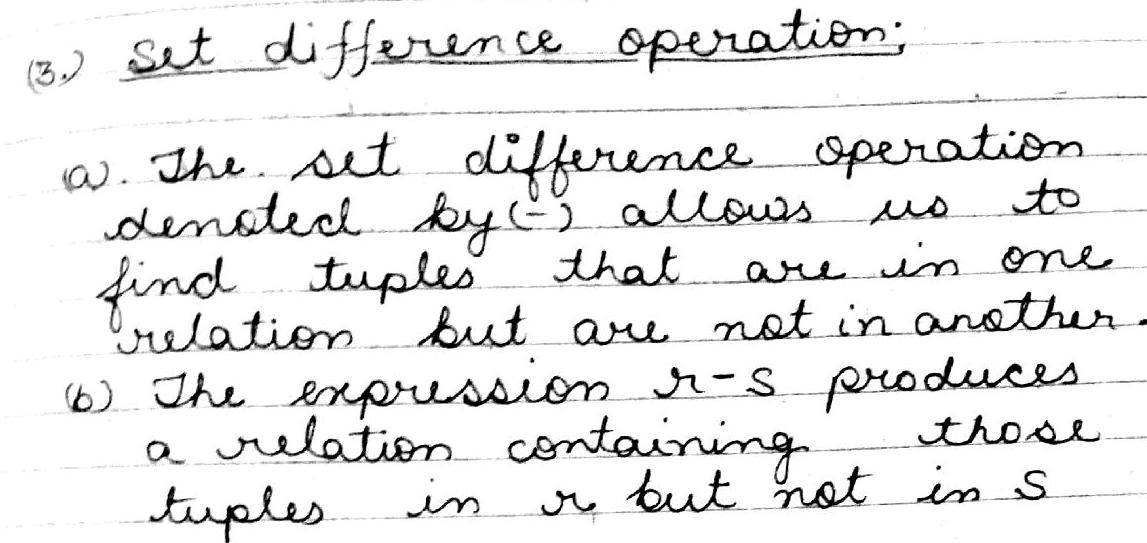 (3.) Set difference operation;
(a). The set difference operation
denoted by (-) allows us to
find tuples that are in one
relation but are not in another.
(b) The expression r-s produces
a relation containing those
tuples in r but not in s